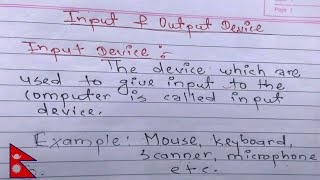 Input & Output Device
Input Device :-
The device which are
used to give input to the
computer is called input
device.
Example: Mouse, keyboard,
Scanner, microphone
etc.